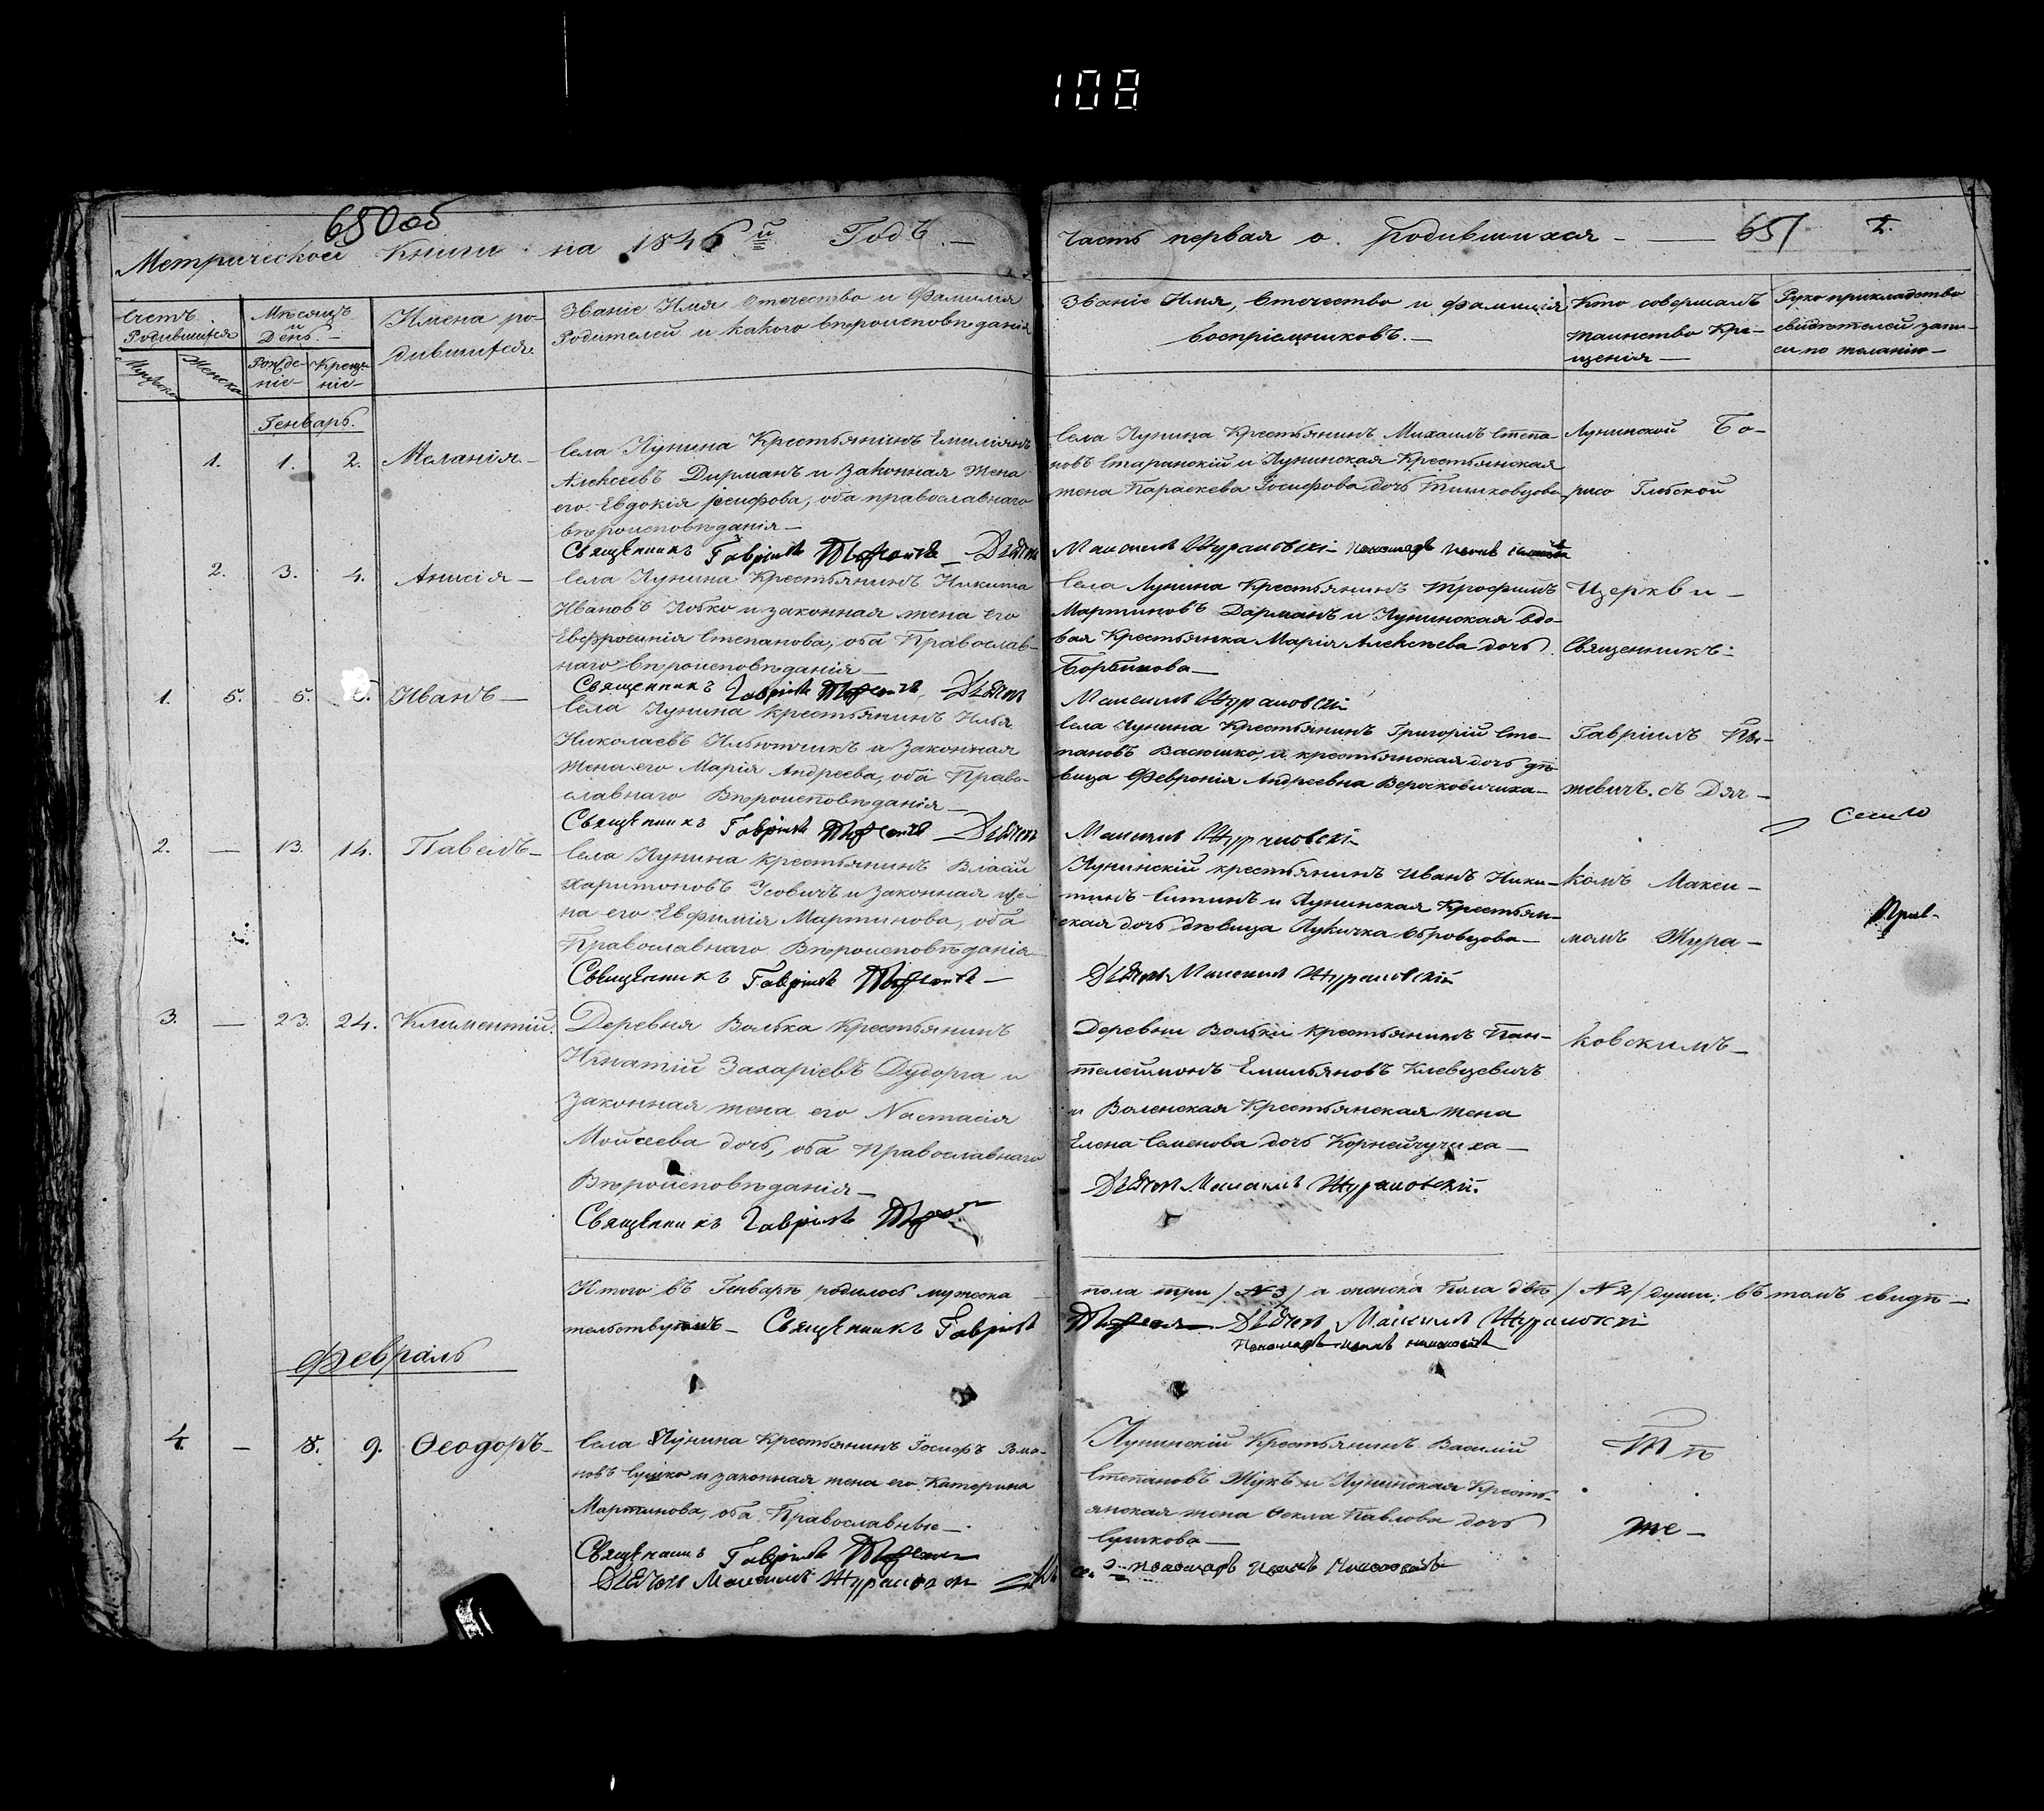 108
650об
Метрической Книги на 1846й Годъ.—
Часть первая о родившихся — 651 2.
Счетъ Родившихся
Мѣсяцъ и День.—
Имена родившихся.
Званіе Имя Отечество и Фамилія
Родителей и какого вѣроисповѣданія
Мужска
Женска
Рожденіе—
Крещеніе—
Званіе Имя, Отечество и фамилія
воспріемниковъ.—
Кто совершалъ
таинство Кре-
щенія—
Рукоприкладство
свидѣтелей запи-
си по желанію—
Генварь.
1. 1. 2. Меланія—
Села Лунина Крестьянинъ Емиліянъ
Алексеевъ Дирманъ и Законная Жена
его Евдокія Іосифова, оба православнаго
вѣроисповѣданія—
Священникъ Гавріилъ
Села Лунина Крестьянинъ Михаилъ Степа-
новъ Старанскій и Лунинская Крестьянская
жена Параскева Іосифова дочь
Максимъ Журановскі
Лунинской Бо-
рисо Глѣбской
2. 3. 4. Анисія—
Села Лунина Крестьянинъ Никита
Ивановъ Лобко и законная жена его
Евфросинія Степанова, оба Православ-
наго вѣроисповѣданія—
Священникъ Гавріилъ
Села Лунина Крестьянинъ Трофимъ
Мартиновъ Дарманъ и Лунинская вдо-
вая Крестьянка Марія Алексѣева дочь
Максимъ Журановскі
Церкви—
Священникъ—
1. 5. 5. 6. Иванъ—
Села Лунина крестьянинъ Илья
Николаевъ Ильючикъ и Законная
Жена его Марія Андреева, оба Право-
славнаго Вѣроисповѣданія—
Священникъ Гавріилъ
Села Лунина Крестьянинъ Григорій Сте-
пановъ Васюшко, и крестьянская дочь дѣ-
вица Февронія Андреевна
Максимъ Журановскі
Гавріилъ
жевичъ. съ Дяч—
2. — 13. 14. Павелъ—
Села Лунина крестьянинъ Власій
Харитоновъ Усовичъ и Законная же-
на его Евфимія Мартинова, оба
Православнаго Вѣроисповѣданія—
Священникъ Гавріилъ
Лунинскій крестьянинъ Иванъ Ники-
тинъ Ситинъ и Лунинская Крестьян-
ская дочь дѣвица
Максимъ Журановскій
комъ Макси—
момъ Жура—
3. — 23. 24. Климентій.
Деревня Волька Крестьянинъ
Игнатій Захаріевъ Дудорга и
Законная жена его Настасія
Мойсеева дочь, оба Православнаго
Вѣроисповѣданія—
Священникъ Гавріилъ
Деревни Вольки крестьянинъ Пан-
телеймонъ Емильяновъ Клевцевичъ
и Воленская Крестьянская жена
Елена Семенова дочь Корнейчучиха—
Максимъ Журановскій.
ковскимъ—
Итого въ Генварѣ родилось мужска
пола три / №3 / а женска пола двѣ / №2 / души; въ томъ свидѣ—
тельствуемъ— Священникъ Гавріилъ
Максимъ Журановскі
Февраль
4. — 8. 9. Ѳеодоръ—
Села Лунина Крестьянинъ Іосифъ Рома-
новъ Сушко и законная жена его Катерина
Мартинова, оба Православные—
Священникъ Гавріилъ
Максимъ
Лунинскій Крестьянинъ Василій
Степановъ Жукъ и Лунинская Кресть-
янская жена Ѳекла Павлова дочь
Сушкова—
Тѣ
же—